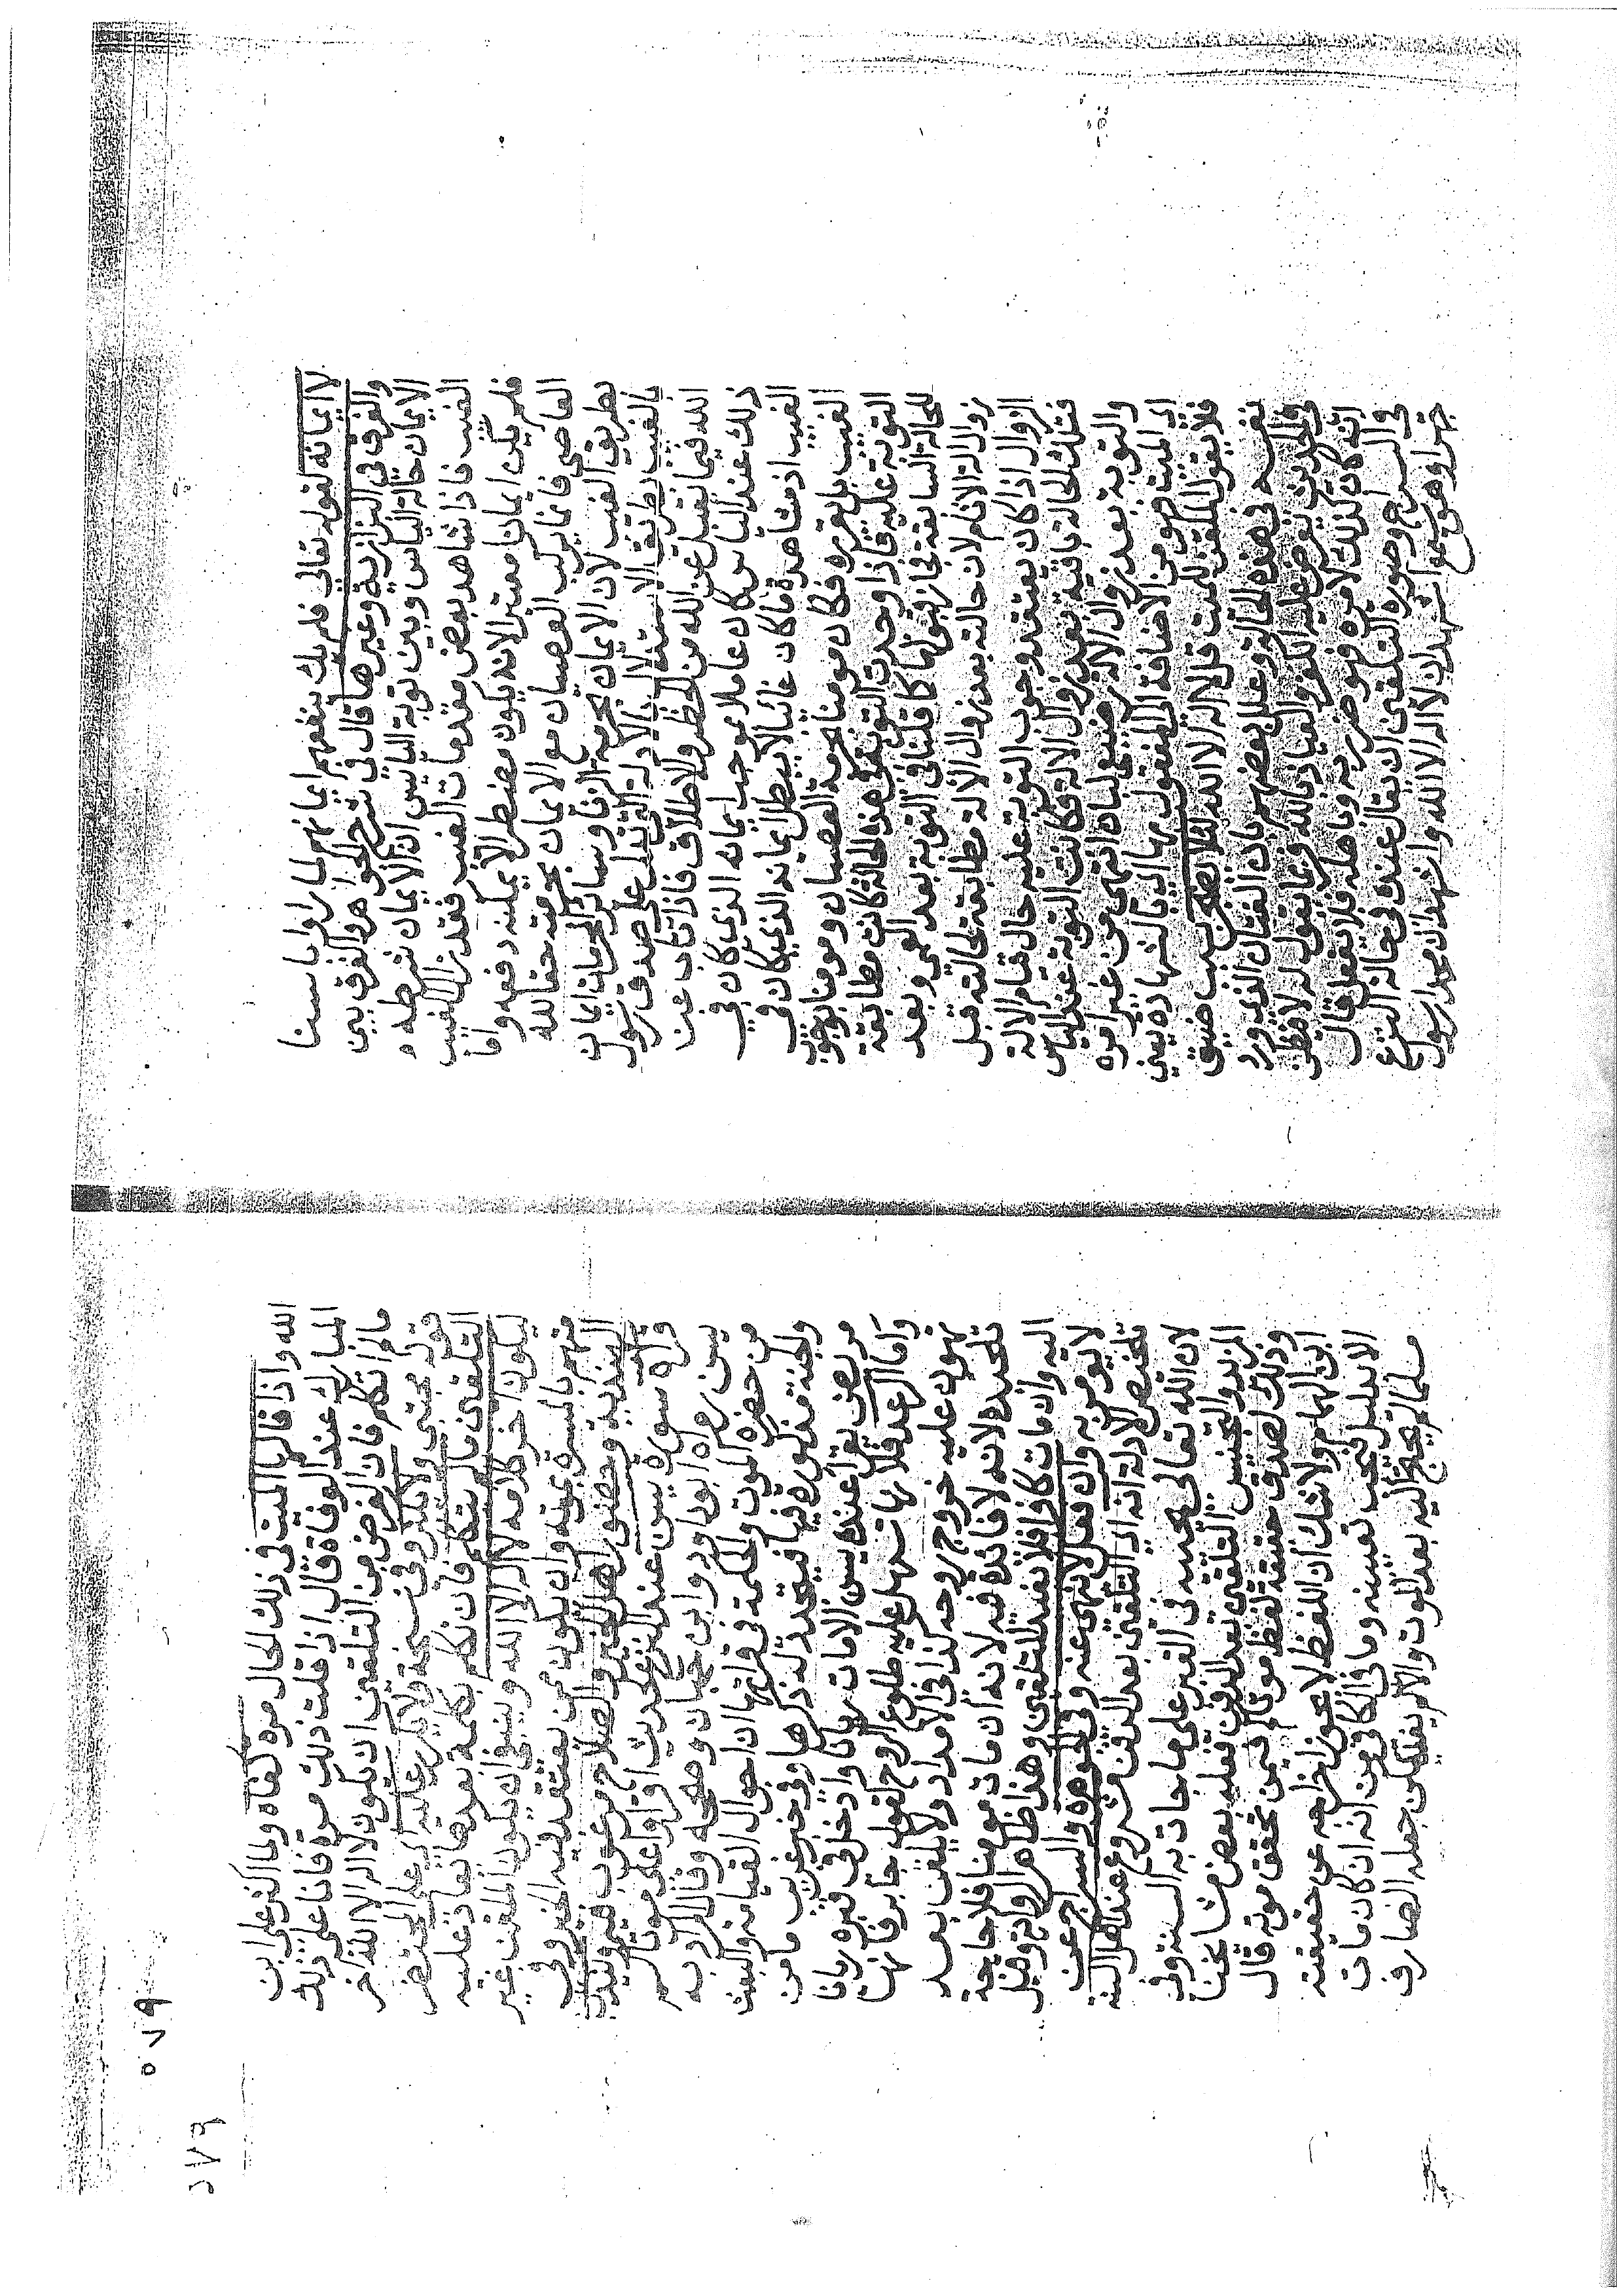 لا ايمانه لقوله تعالى فلم يك ينفعهم ايمانهم لما راوا باسنا
والفرق في البزازية وغيرها قال في شرح الجواهر والفرق بين
الايمان حالة الياس وبين توبة اليائس ان الايمان شرطه
الغيب فاذا شاهد بعض مقدمات الغيب فقد زال الغيب
فلم يكن ايمانا معتبرا لانه يكون مضطرا لا يمكنه دفعه واما
العاصي فانما يركب العصيان مع الايمان بحرمته حقا لله
بطريق الغيب لان الايمان بحرمة الزنا وسائر المحرمات ايمان
بالغيب بطريق الاستدلال بالادلة التي تدل على صدق رسول
الله فيما نقبل عن الله من الحظر والاطلاق فاذا تاب عن
ذلك عند الياس كان عاملا بموجب ايمانه الذي كان في
الغيب اذ مشاهدة ما كان غائبا لا يبطل ايمانه الذي كان في
الغيب بل يقرره فكان مومنا بحرمة العصيان ومومنا بوجوب
التوبة عليه فاذا وجدت التوبة في هذه الحالة كانت مطابقة
للحالة السابقة فجاز قبولها كما قلنا في التوبة بعد العمى وبعد
زوال الة الاثام لان حالته بعد زوال الالة مطابقة لحالته قبل
الزوال اذا كان يعتقد وجوب التوبة عليه حال قيام الالة
فتلك الحالة باقية بعد زوال الالة فكانت التوبة عند الياس
والتوبة بعد زوال الالة صنيع لباب انتهى من غير امره
اي الميت وهو من الاضافة الى المفعول بها اي بالشهادة يعني
فلا يقول الملقن للميت قل لا اله الا الله لئلا يضجر بسبب ضيق
نفسه في هذه الحالة وعلل بعضهم بان الفتان الذي ورد
في الحديث يعرض عليه الكفر والعياذ بالله فربما يقول له لا فيظن
انه كان كذلك لامره فهو ضرر به وباهله فلا تفعل قال
في السراج وصورة التلقين ان يقال عنده في حالة النزع
جهرا وهو يسمع اشهد ان لا اله الا الله واشهد ان محمدا رسول
الله واذا قالها الميت في ذلك الحال مرة كفاه ولما اكثر على ابن
المبارك عند الوفاة قال اذا قلت ذلك مرة فانا على ذلك
مالم اتكلم فان الغرض من التلقين ان يكون لا اله الا الله اخر
قوله مجتبى ولا يكرر وفي نسخة ولا يكرر عليه اي على المحتضر
التلقين ما لم يتكلم فان تكلم بكلمة بعدها تعاد عليه
ليكون اخر كلامه لا اله الا الله وينبغي ان يكون الملقن غير
متهم بالمسرة بموته وان يكون ممن يعتقد فيه الخير وفي
الهندية وحضور اهل الخير والصلاح مرغوب فيه ويندب
قراة سورة يس عند النزع لحديث اقراوا على موتاكم
يس رواه ابو داود وابن حبان وصححه وقال المراد به
من حضره الموت والحكمة في قراتها ان احوال القيامة والبعث
والجنة مذكورة فيها فيتجدد له ذكرها وفي خبر غريب ما من
مريض يقرا عنده يس الا مات ريانا وادخل في قبره ريانا
واما الرعد فلانها تسهل عليه طلوع الروح لقول جابر فانها
تهون عليه خروج روحه كذا في الامداد ولا يلقن بعد
تلحيده لانه لا فائدة فيه لانه ان مات مومنا فلا حاجة
اليه وان مات كافرا فلا يفيد التلقين وهذا ظاهر الرواية وقيل
لا يومر به وان فعل لا ينهى عنه وفي الجوهرة والسراج عن
تلخيص الادلة انه اي التلقين بعد الدفن مشروع عند اهل السنة
لان الله تعالى يحييه في القبر على ما جاءت به السنة وفي
المزيد والتجنيس التلقين بعد الدفن فعله بعض مشايخنا
وذلك لصدق حقيقة لفظ موتاكم فيمن تحقق موته قال
ابن الهمام ولا شك ان اللفظ لا يجوز اخراجه عن حقيقته
الا بدليل فيجب تعيينه وما في الكافي من انه ان كان مات
مسلما لم يحتج اليه بعد الموت والا لم يفد يمكن جعله الصارف
٥٧٩
٢٧٤